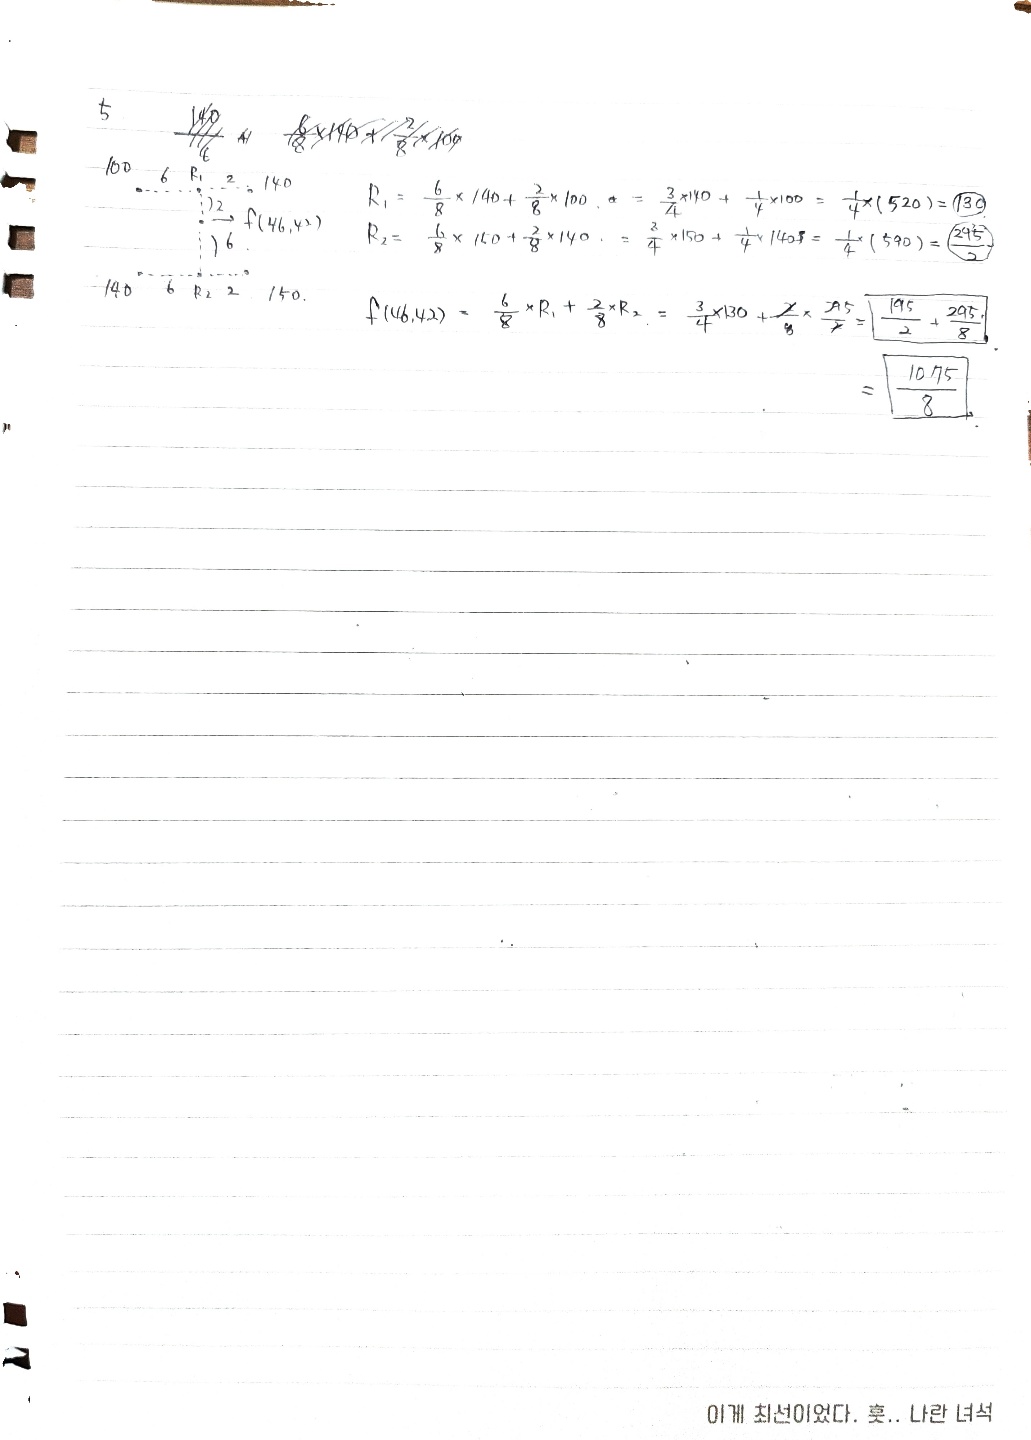 5
100 6 R₁ 2 140
2
f(46,42)
6
140 6 R₂ 2 150.
R₁ = 6/8 × 140 + 2/8 × 100. = 3/4 × 140 + 1/4 × 100 = 1/4 × (520) = 130
R₂ = 6/8 × 150 + 2/8 × 140. = 3/4 × 150 + 1/4 × 140 = 1/4 × (590) = 295/2
f(46,42) = 6/8 × R₁ + 2/8 × R₂ = 3/4 × 130 + 2/8 × 295/2 = 195/2 + 295/8
= 1075/8
이게 최선이었다. 훗.. 나란 녀석